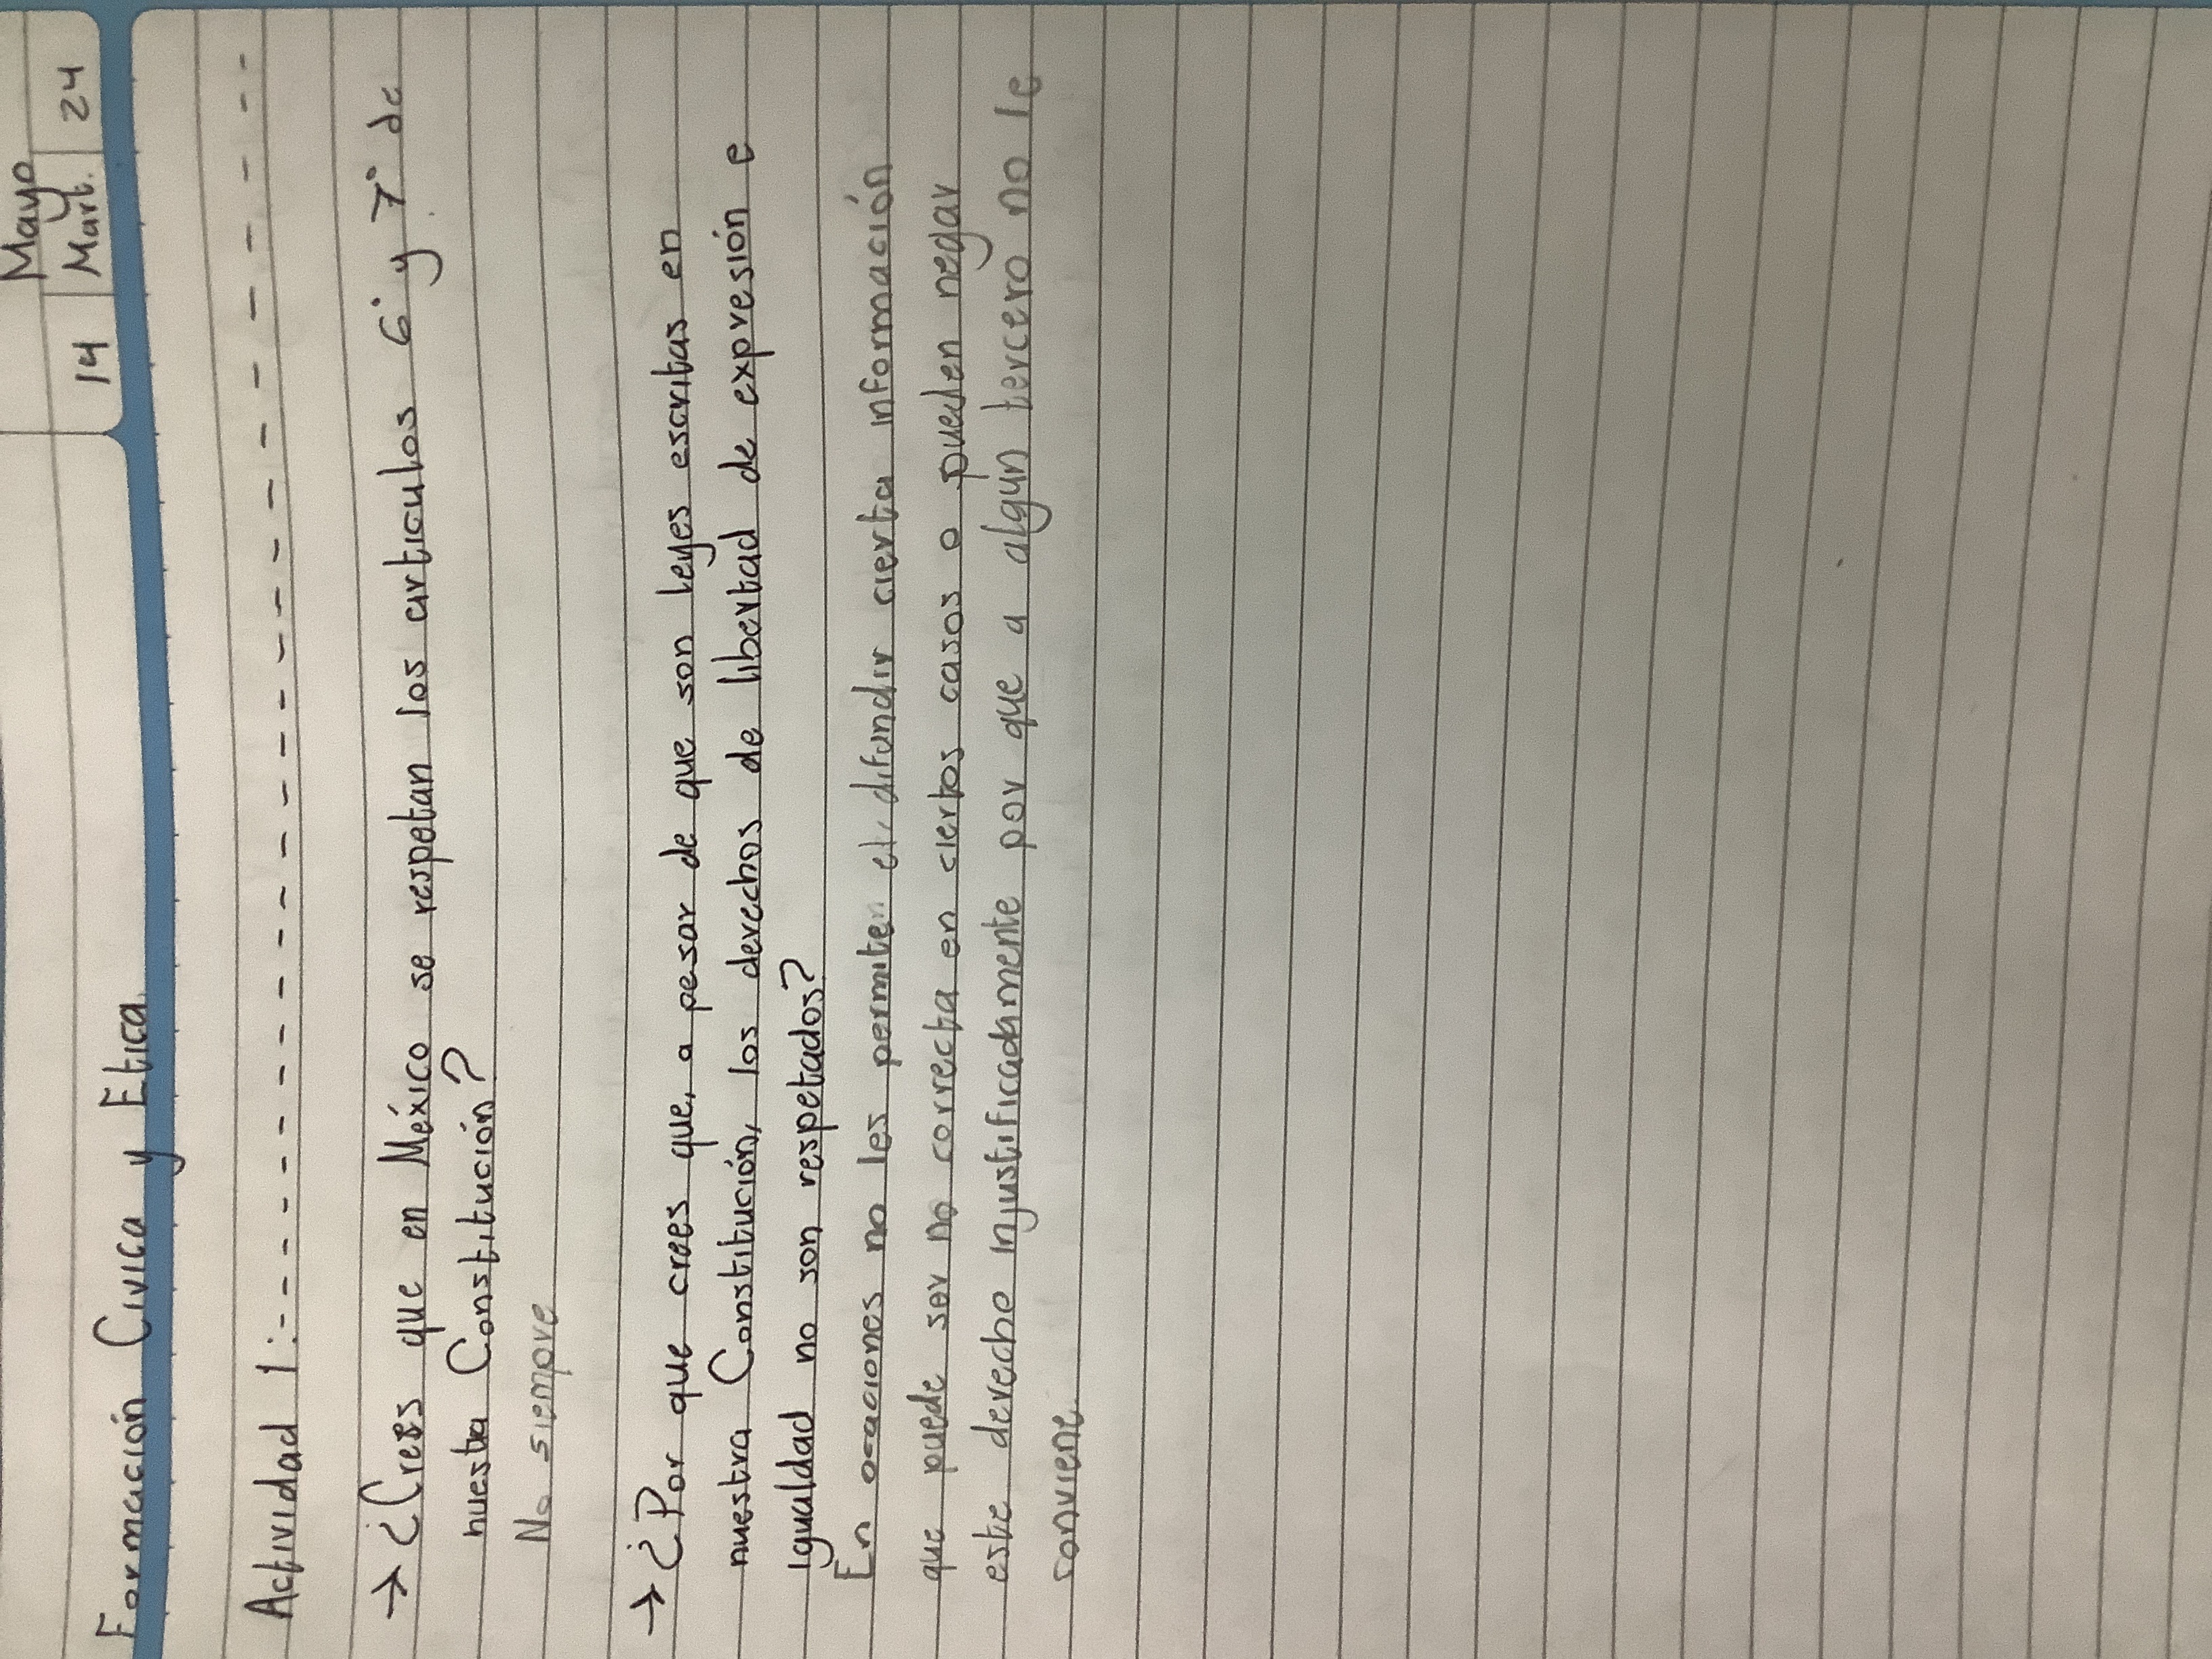 Mayo
14 Mart. 24
Formación Civica y Etica.
Actividad 1:- - - - - - - - - - - - - - - - - - - -
→ ¿Crees que en México se respetan los articulos 6° y 7° de
nuestra Constitución?
No siempre
→ ¿Por que crees que, a pesar de que son leyes escritas en
nuestra Constitución, los derechos de libertad de expresión e
igualdad no son respetados?
En ocaciones no les permiten el difundir cierta información
que puede ser no correcta en ciertos casos o pueden negar
este derecho injustificadamente por que a algun tercero no le
conviene.